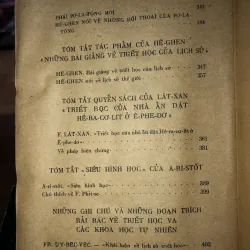 PHÁI PLA-TÔNG MỚI
HÊ-GHEN NÓI VỀ NHỮNG ĐỐI THOẠI CỦA PLA-
TÔNG
TÓM TẮT TÁC PHẨM CỦA HÊ-GHEN
« NHỮNG BÀI GIẢNG VỀ TRIẾT HỌC CỦA LỊCH SỬ »
HÊ-GHEN. Bài giảng về triết học của lịch sử 347
HÊ-GHEN nói về lịch sử thế giới 357
TÓM TẮT QUYỂN SÁCH CỦA LÁT-XAN
« TRIẾT HỌC CỦA NHÀ ẨN DẬT
HÊ-RA-CƠ-LIT Ở Ê-PHE-DƠ »
F. LÁT-XAN. « Triết học của nhà ẩn dật Hê-ra-cơ-lit ở
Ê-phe-dơ » 361
Về phép biện chứng 381
TÓM TẮT « SIÊU HÌNH HỌC » CỦA A-RI-STỐT
A-ri-stốt. « Siêu hình học » 389
Chú thích về F. Phít-se 399
NHỮNG GHI CHÚ VÀ NHỮNG ĐOẠN TRÍCH
RẢI RÁC VỀ TRIẾT HỌC VÀ
CÁC KHOA HỌC TỰ NHIÊN